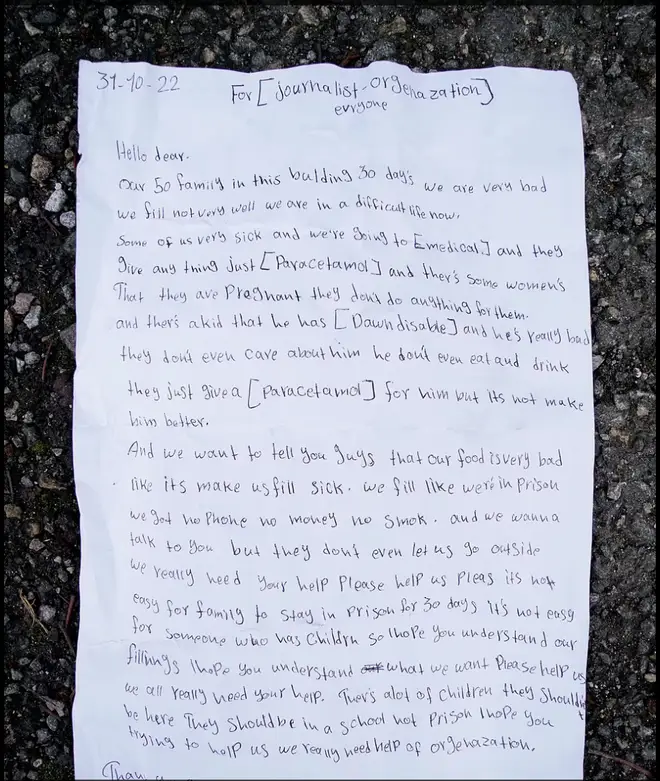 31-10-22
For [journalist-orgenazation]
evryone
Hello dear.
Our 50 family in this bulding 30 day's we are very bad
we fill not very well we are in a difficult life now.
Some of us very sick and we're going to [medical] and they
give any thing just [Paracetamol] and ther's some women's
That they are Pregnant they don't do anything for them.
and ther's a kid that he has [Dawn disable] and he's really bad
they don't even care about him he don't even eat and drink
they just give a [paracetamol] for him but its not make
him better.
And we want to tell you guys that our food is very bad
like its make us fill sick. we fill like were in prison
we got no Phone no money no smok. and we wanna
talk to you but they don't even let us go outside
we really need your help Please help us Pleas its not
easy for family to stay in Prison for 30 days it's not easy
for someone who has Childrn so I hope you understand our
fillings I hope you understand what we want Please help us
we all really need your help. Ther's alot of Children they Should'nt
be here They Should be in a school not Prison I hope you
trying to help us we really need help of orgenazation.